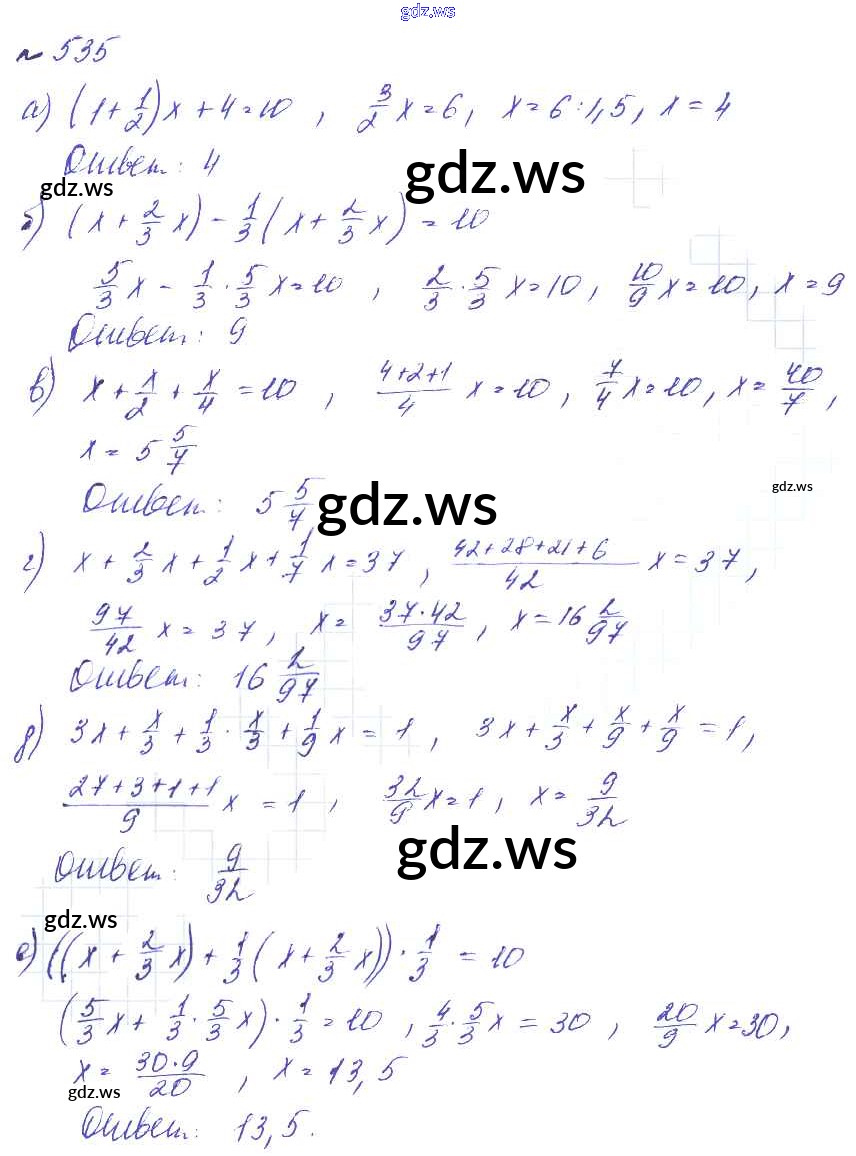 gdz.ws
№ 535
а) (1 + 1/2)x + 4 = 10 , 3/2 x = 6, x = 6 : 1,5, x = 4
Ответ: 4
gdz.ws
gdz.ws
б) (x + 2/3 x) - 1/3 (x + 2/3 x) = 10
5/3 x - 1/3 · 5/3 x = 10 , 2/3 · 5/3 x = 10, 10/9 x = 10, x = 9
Ответ: 9
в) x + x/2 + x/4 = 10 , (4+2+1)/4 x = 10, 7/4 x = 10, x = 40/7,
x = 5 5/7
Ответ: 5 5/7
gdz.ws
gdz.ws
г) x + 2/3 x + 1/2 x + 1/7 x = 37 , (42+28+21+6)/42 x = 37,
97/42 x = 37, x = (37·42)/97, x = 16 2/97
Ответ: 16 2/97
д) 3x + x/3 + 1/3 · x/3 + 1/9 x = 1 , 3x + x/3 + x/9 + x/9 = 1,
(27+3+1+1)/9 x = 1 , 32/9 x = 1, x = 9/32
Ответ: 9/32
gdz.ws
gdz.ws
е) ((x + 2/3 x) + 1/3 (x + 2/3 x)) · 1/3 = 10
(5/3 x + 1/3 · 5/3 x) · 1/3 = 10 , 4/3 · 5/3 x = 30 , 20/9 x = 30,
x = (30·9)/20 , x = 13,5
gdz.ws
gdz.ws
Ответ: 13,5.